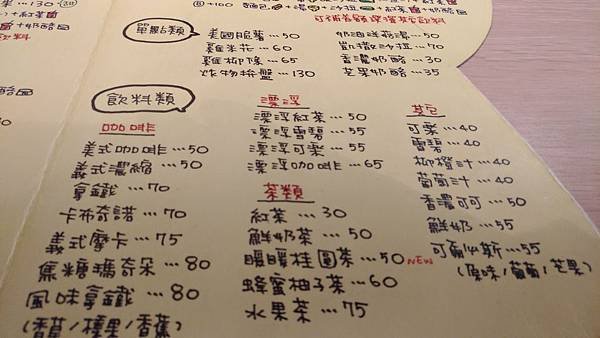 單點類
美國脆薯…50
雞米花…60
雞柳條…65
炸物拼盤…130
凱撒沙拉…70
香濃奶酪…30
芒果奶酪…35
飲料類
咖啡
美式咖啡…50
義式濃縮…50
拿鐵…70
卡布奇諾…70
義式摩卡…75
焦糖瑪奇朵…80
風味拿鐵…80
(香草/榛果/香蕉)
漂浮
漂浮紅茶…50
漂浮雪碧…55
漂浮可樂…55
漂浮咖啡…65
茶類
紅茶…30
鮮奶茶…50
暖暖桂圓茶…50 NEW
蜂蜜柚子茶…60
水果茶…75
其它
可樂…40
雪碧…40
柳橙汁…40
葡萄汁…40
香濃可可…50
鮮奶…55
可爾必斯…55
(原味/葡萄/芒果)